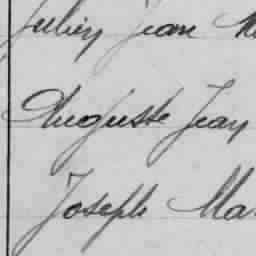 Julien Jean
Auguste Jean
Joseph Mar